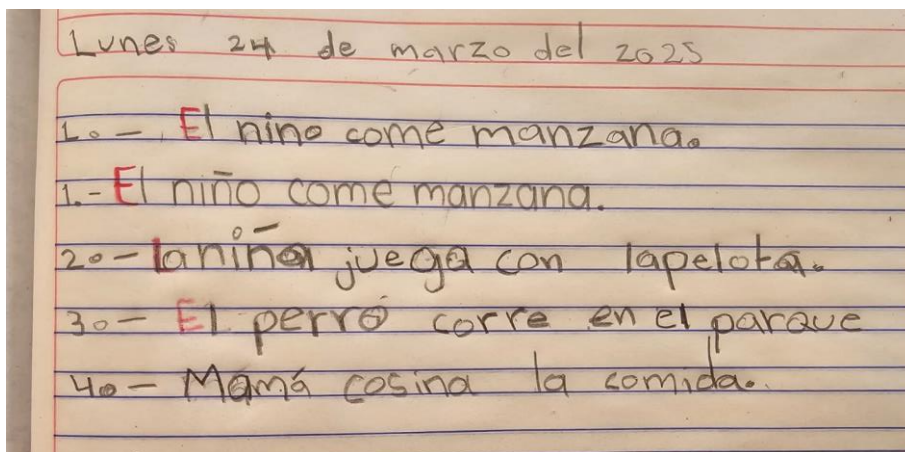 Lunes 24 de marzo del 2025
1.- El nino come manzana.
1.- El niño come manzana.
2.- laniña juega con lapelota.
3.- El perro corre en el parque
4.- Mamá cosina la comida.